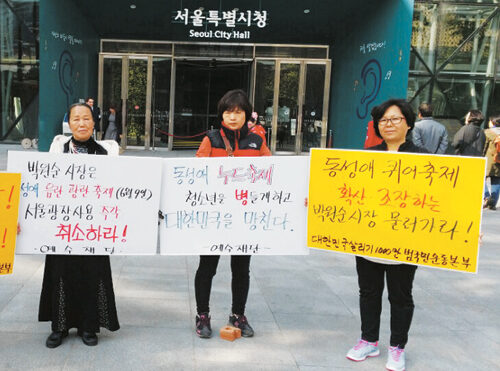 서울특별시청
Seoul City Hall
박원순 시장은
동성애 음란 광란 축제 (6월9일)
서울광장사용 즉각
취소하라!
- 예수재단 -
동성애 누드축제
청소년을 병들게하고
대한민국을 망친다.
- 예수재단 -
동성애 퀴어축제
확산 조장하는
박원순시장 물러가라!
대한민국살리기1000만 범국민운동본부